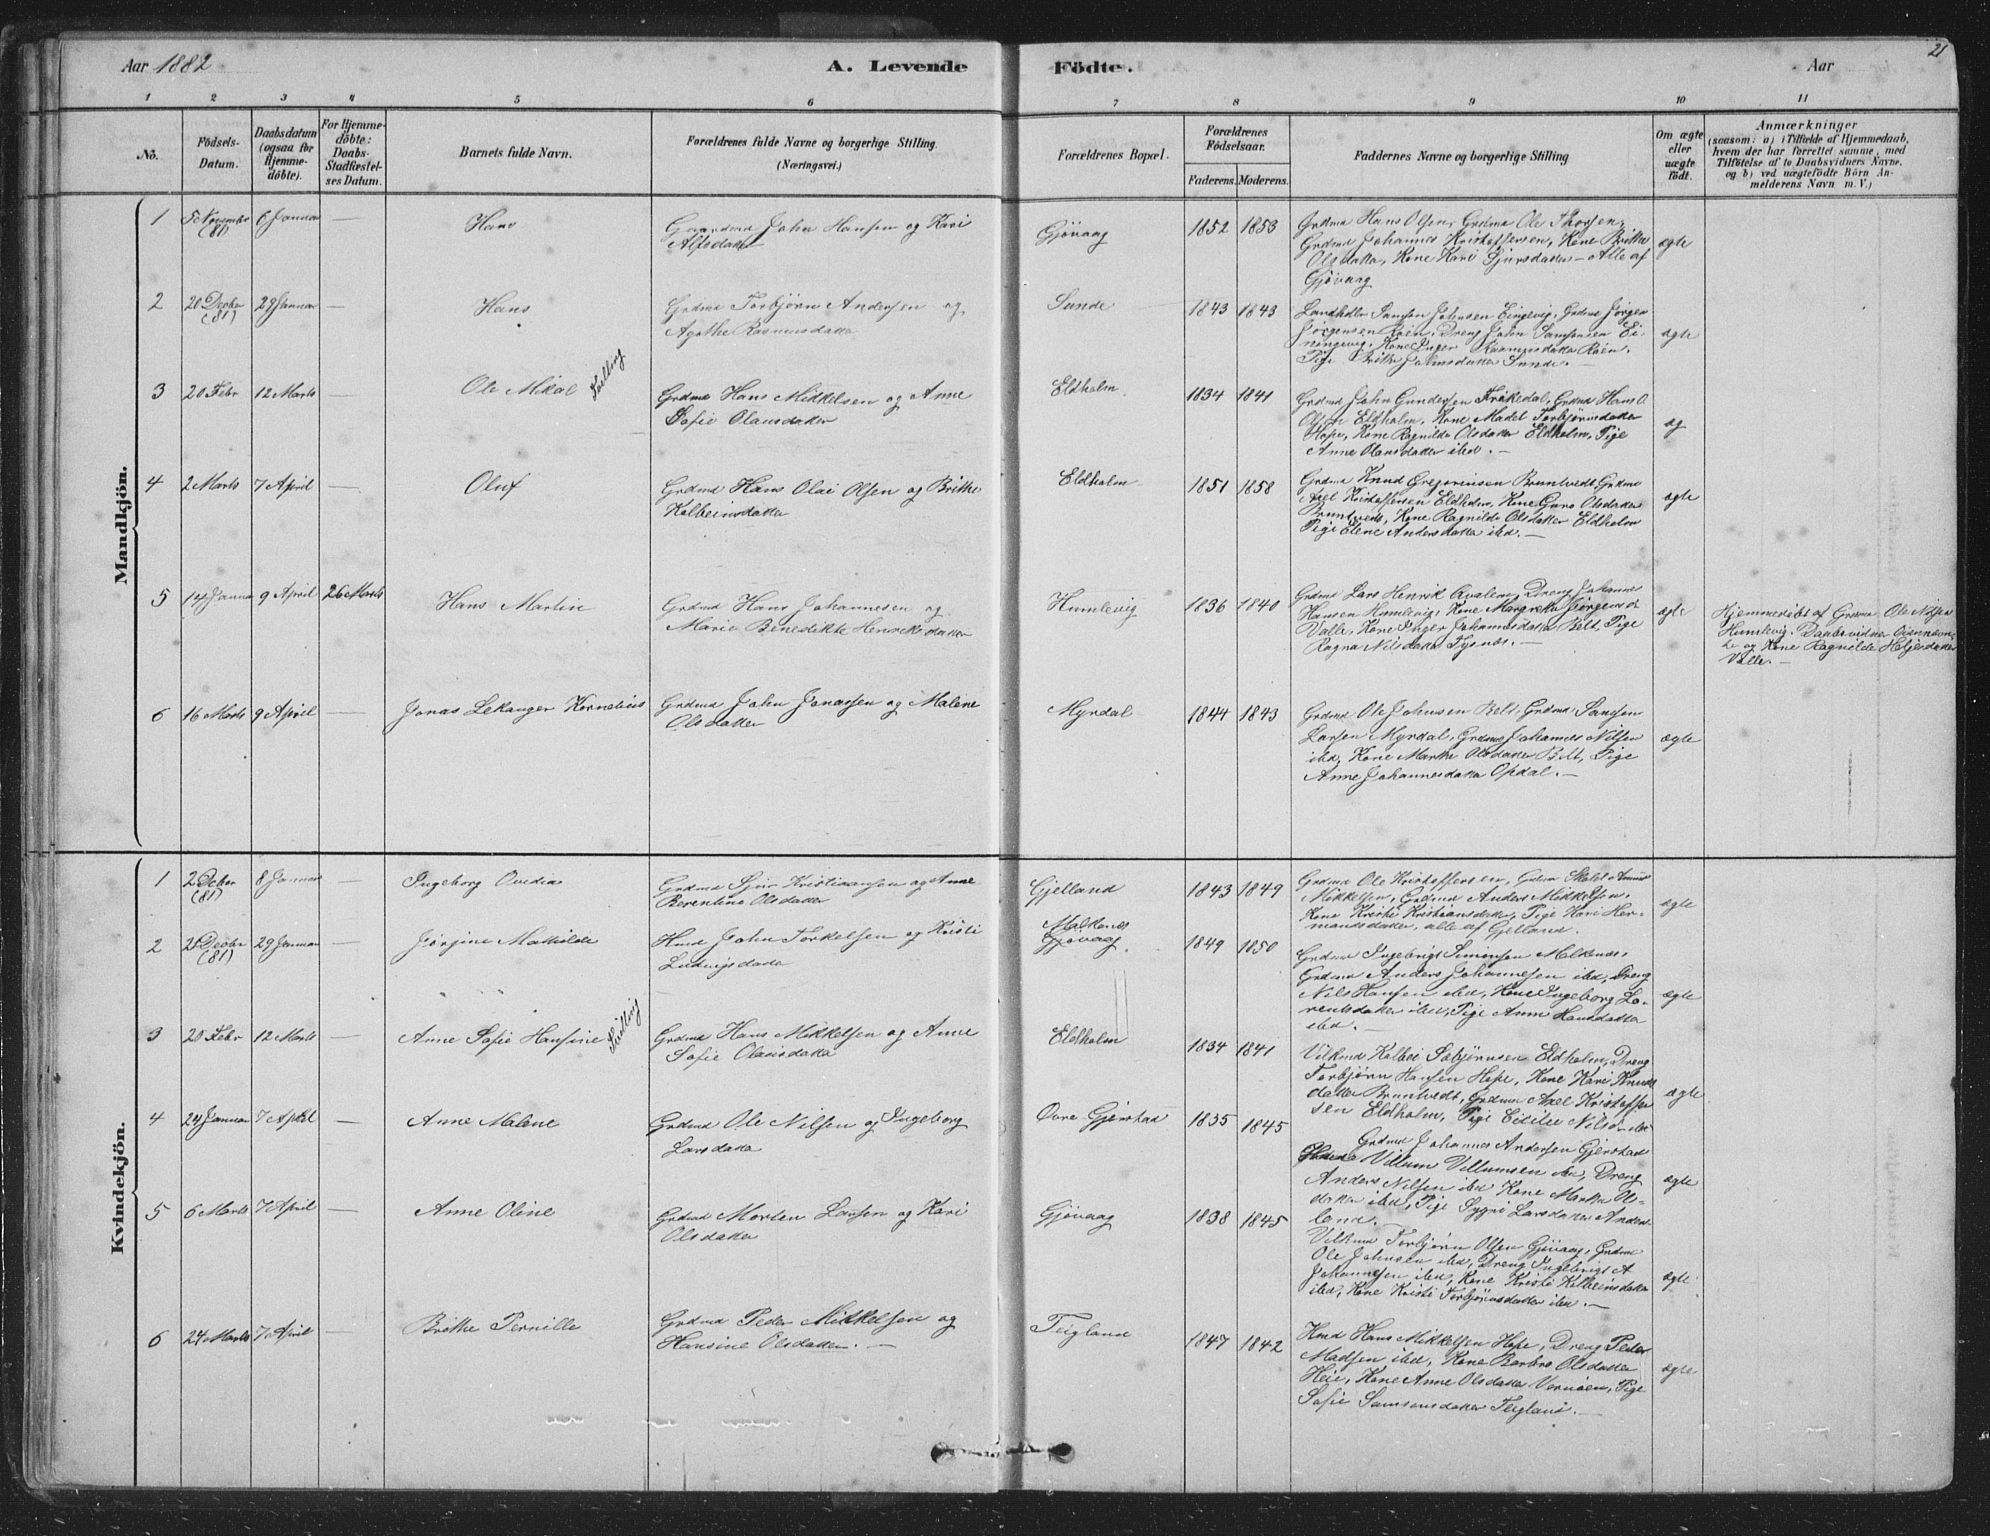 Aar 1882
A. Levende
Födte.
Aar
21
1 2 3 4 5 6 7 8 9 10 11
No.
Födsels-
Datum.
Daabsdatum
(ogsaa for
Hjemme-
döbte).
For Hjemme-
döbte:
Daabs-
Stadfæstel-
ses Datum.
Barnets fulde Navn.
Forældrenes fulde Navne og borgerlige Stilling.
(Næringsvei.)
Forældrenes Bopæl.
Forældrenes
Födselsaar.
Faderens. Moderens.
Faddernes Navne og borgerlige Stilling
Om ægte
eller
uægte
födt.
Anmærkninger
(saasom: a) i Tilfælde af Hjemmedaab,
hvem der har forrettet samme, med
Tilföielse af to Daabsvidners Navne,
og b) ved uægtefödte Börn An-
melderens Navn m. V.)
Mandkjön.
1 5 Novembr (81) 6 Januar — Hans
Gaardmd John Hansen og Kari
Alfsdatter
Gjövaag 1852 1853
Grdmd Hans Olsen, Grdmd Ole Thorsen,
Grdmd Johannes Kristoffersen, Kone Brithe
Olsdatter, Kone Kari Sjursdatter — Alle af
Gjövaag
ægte
2 20 Decbr (81) 29 Januar — Hans
Grdmd Torbjörn Andersen og
Agathe Rasmusdatter
Sunde 1843 1843
Landhdlr Samson Johnsen Einevig, Grdmd Jörgen
Jörgensen Röen, Dreng John Samsonsen Ei-
ningevig, Kone Inger Rasmusdatter Röen,
Pige Brithe Johnsdatter Sunde.
ægte
3 20 Febr 12 Marts — Ole Mikal Tvilling
Grdmd Hans Mikkelsen og Anne
Sofie Olausdatter
Eldholm 1834 1841
Grdmd John Gundersen Frökedal, Grdmd Hans O.
Olsen Eldholm, Kone Madel Torbjörnsdatter
Hope, Kone Ragnilde Olsdatter Eldholm, Pige
Anne Olausdatter ibid. —
æg
4 2 Marts 7 April — Oluf
Grdmd Hans Olai Olsen og Brithe
Kolbeinsdatter
Eldholm 1851 1858
Grdmd Knud Gregoriusen Bruntvedt, Grdmd
Axel Kristoffersen Eldholm, Kone Guro Olsdatter
Bruntvedt, Kone Ragnilde Olsdatter Eldholm
Pige Elene Andersdatter ibid. —
ægte
5 14 Januar 9 April 26 Marts Hans Martin
Grdmd Hans Johannesen og
Marie Benedikte Henriksdatter
Humlevig 1836 1840
Grdmd Lars Henrik Dreng Johannes
Hansen Humlevig, Kone Margrethe Jörgensd
Valle, Kone Inger Johannesdatter Belt, Pige
Ragna Nilsdatter Tysnæs. —
ægte
Hjemmedöbt af Grdmd Ole Nilsen
Humlevig. Daabsvidner Ovennævn-
te og Kone Ragnilde
Valle. —
6 16 Marts 9 April — Jonas Lekanger Kornelius
Grdmd John Jonassen og Malene
Olsdatter
Myrdal 1844 1843
Grdmd Ole Johnsen Belt, Grdmd Samson
Larsen Myrdal, Grdmd Johannes Nilsen
ibid, Kone Marthe Olsdatter Belt, Pige
Anne Johannesdatter Opdal. —
ægte
Kvindekjön.
1 2 Decbr (81) 8 Januar — Ingeborg Ovedia
Grdmd Sjur Kristiansen og Anne
Berentine Olsdatter
Gjelland 1843 1849
Grdmd Ole Kristoffersen,
Mikkelsen, Grdmd Anders Mikkelsen,
Kone Kristi Kristiansdatter, Pige Kari Her-
mansdatter, alle af Gjelland.
ægte
2 28 Decbr (81) 29 Januar — Jörgine Mathilde
Hmd John Torkelsen og Kristi
Ludvigsdatter
Malkenes
Gjövaag 1849 1850
Grdmd Ingebrigt Simonsen Malknes,
Grdmd Anders Johannesen ibid, Dreng
Nils Hansen ibid, Kone Ingeborg La-
rentsdatter ibid, Pige Anna Hansdatter
ibid. —
ægte
3 20 Febr 12 Marts — Anne Sofie Hansine Tvilling
Grdmd Hans Mikkelsen og Anne
Sofie Olausdatter
Eldholm 1834 1841
Vilkmd Kolbei Eldholm, Dreng
Torbjörn Hansen Hope, Kone Kari Knuds
datter Bruntvedt, Grdmd Axel Kristoffer
sen Eldholm, Pige Nilsen ibid
ægte
4 24 Januar 7 April — Anne Malene
Grdmd Ole Nilsen og Ingeborg
Larsdatter
Övre Gjerstad 1835 1845
Grdmd Johannes Andersen Gjerstad
Villum Villumsen ibid, Dreng
Anders Nilsen ibid Kone Marthe Ol-
datter ibid, Pige Sygni Larsdatter Anders
land.
ægte
5 6 Marts 7 April — Anne Oline
Grdmd Morten Larsen og Kari
Olsdatter
Gjövaag 1838 1845
Vilkmd Torbjörn Olsen Gjövaag, Grdmd
Ole Johnsen ibid, Dreng Ingebrigt A
Johannesen ibid, Kone Kristi Kolbeinsdatter
ibid, Kone Kristi Torbjörnsdatter ibid. —
ægte
6 24 Marts 7 April — Brithe Pernille
Grdmd Peder Mikkelsen og
Hansine Olsdatter. —
Teigland 1847 1842
Hmd Hans Mikkelsen Hope, Dreng Peder
Madsen ibid, Kone Barbro Olsdatter
Heie, Kone Anne Olsdatter Vernöen, Pige
Sofie Samsonsdatter Teigland. —
ægte